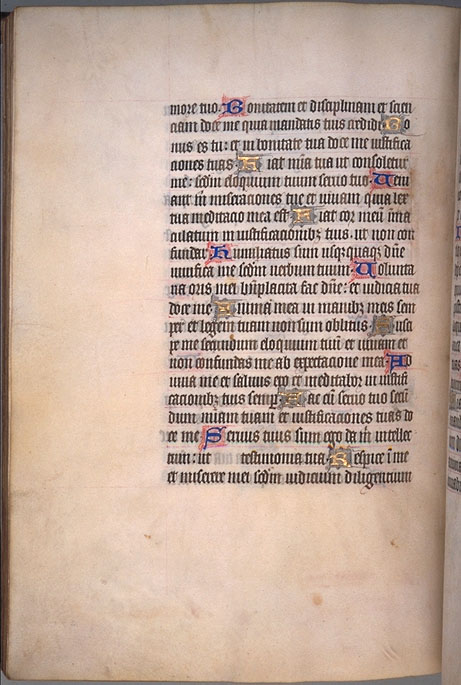 more tuo. Bonitatem et disciplinam et scien
ciam doce me quia mandatis tuis credidi. Bo
nus es tu: et in bonitate tua doce me iustifica
ciones tuas. Fiat mīa tua ut consoletur
me: scd̄m eloquium tuum seruo tuo. Ueni
ant m̄ miseraciones tue et uiuam quia lex
tua meditacio mea est. Fiat cor meū īma
culatum in iustificacionibz tuis. ut non con
fundar. Humiliatus sum usqzquaqz dn̄e
uiuifica me scd̄m uerbum tuum. Uolunta
ria oris mei bn̄placita fac dn̄e: et iudicia tua
doce me. Anima mea in manibz meis sem
per et legem tuam non sum oblitus. Susci
pe me secundum eloquium tuū et uiuam et
non confundas me ab expectacione mea. Ad
iuua me et saluus ero et meditabor in iustifi
cacionibz tuis semꝑ. Fac cū seruo tuo secū
dum miam tuam et iustificaciones tuas do
ce me. Seruus tuus sum ego da m̄ intellec
tum: ut testimonia tua. Respice ī me
et miserere mei scd̄m iudicium diligencium